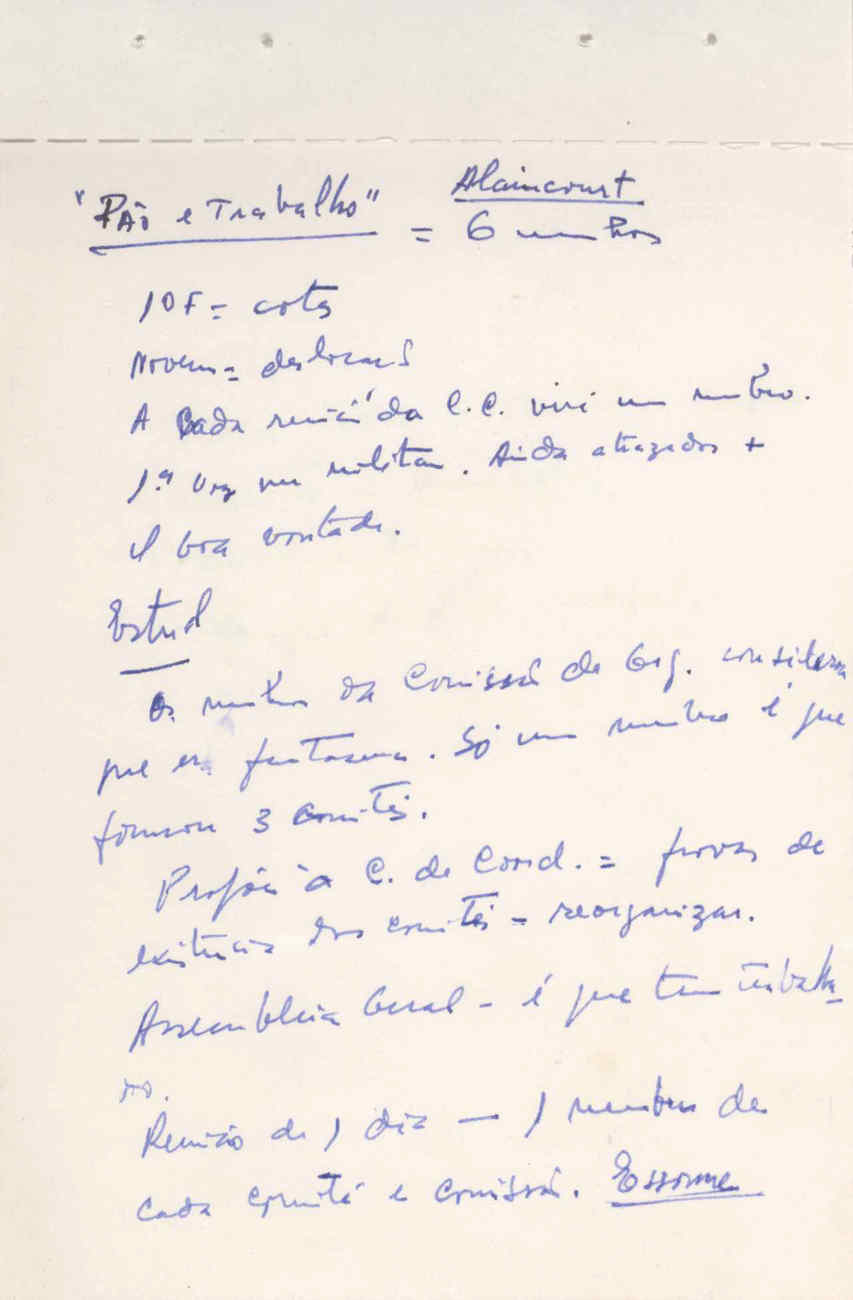 "Pão e Trabalho" Alaincourt
= 6 membros
10F = cota
A cada reunião da C.C. vai um membro.
1ª vez militam. Ainda atrazados +
boa vontade.
Os membros da Comissão de Org. consideram
que era fantasma. Só um membro é que
formou 3 comités.
Propôr à C. de Coord. = provas de
existência dos comités = reorganizar.
Assembleia Geral - é que tem trabalha-
do.
Reunião de 1 dia — 1 membro de
cada comité e comissão. Essonne